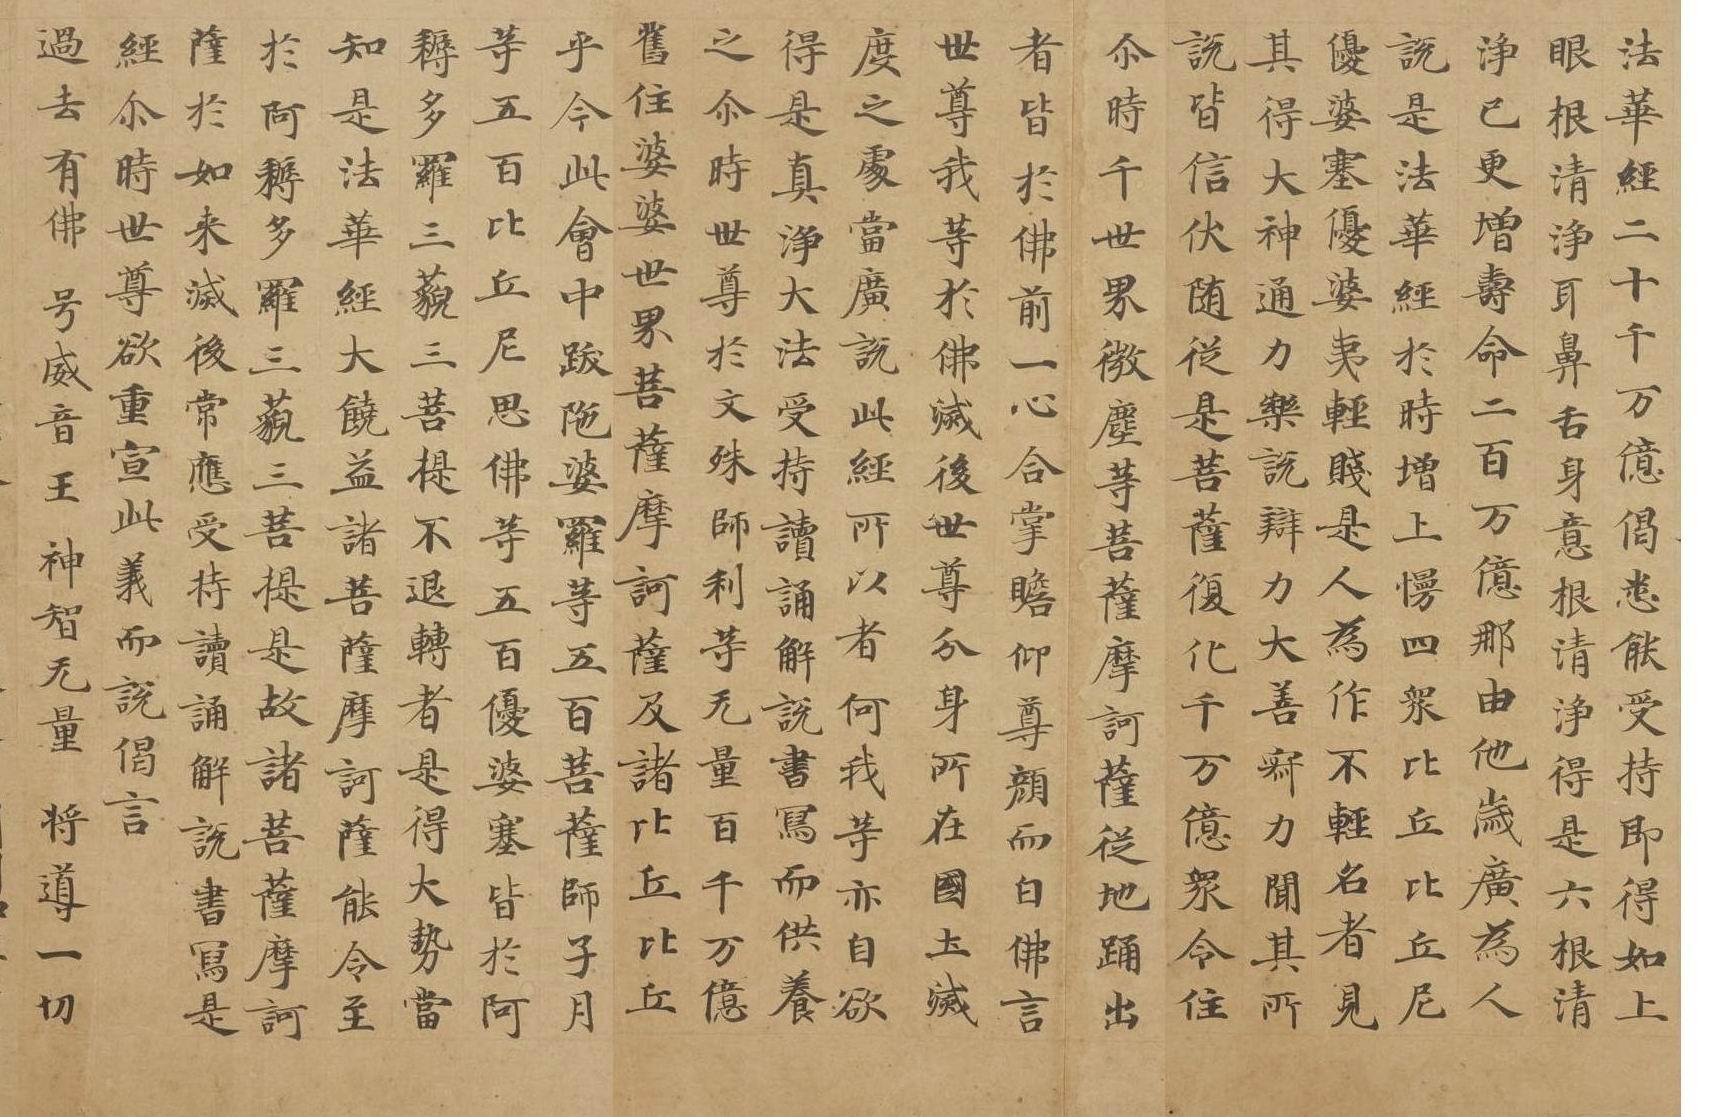 法華經二十千万億偈悉能受持即得如上
眼根清淨耳鼻舌身意根清淨得是六根清
淨已更增壽命二百万億那由他歲廣為人
說是法華經於時增上慢四眾比丘比丘尼
優婆塞優婆夷輕賤是人為作不輕名者見
其得大神通力樂說辯力大善寂力聞其所
說皆信伏随從是菩薩復化千万億眾令住
尒時千世界微塵等菩薩摩訶薩從地踊出
者皆於佛前一心合掌瞻仰尊顏而白佛言
世尊我等於佛滅後世尊分身所在國土滅
度之處當廣說此經所以者何我等亦自欲
得是真淨大法受持讀誦解說書寫而供養
之尒時世尊於文殊師利等无量百千万億
舊住娑婆世界菩薩摩訶薩及諸比丘比丘
乎今此會中跋陁婆羅等五百菩薩師子月
等五百比丘尼思佛等五百優婆塞皆於阿
耨多羅三藐三菩提不退轉者是得大勢當
知是法華經大饒益諸菩薩摩訶薩能令至
於阿耨多羅三藐三菩提是故諸菩薩摩訶
薩於如来滅後常應受持讀誦解說書寫是
經尒時世尊欲重宣此義而說偈言
過去有佛 号威音王 神智无量 将導一切